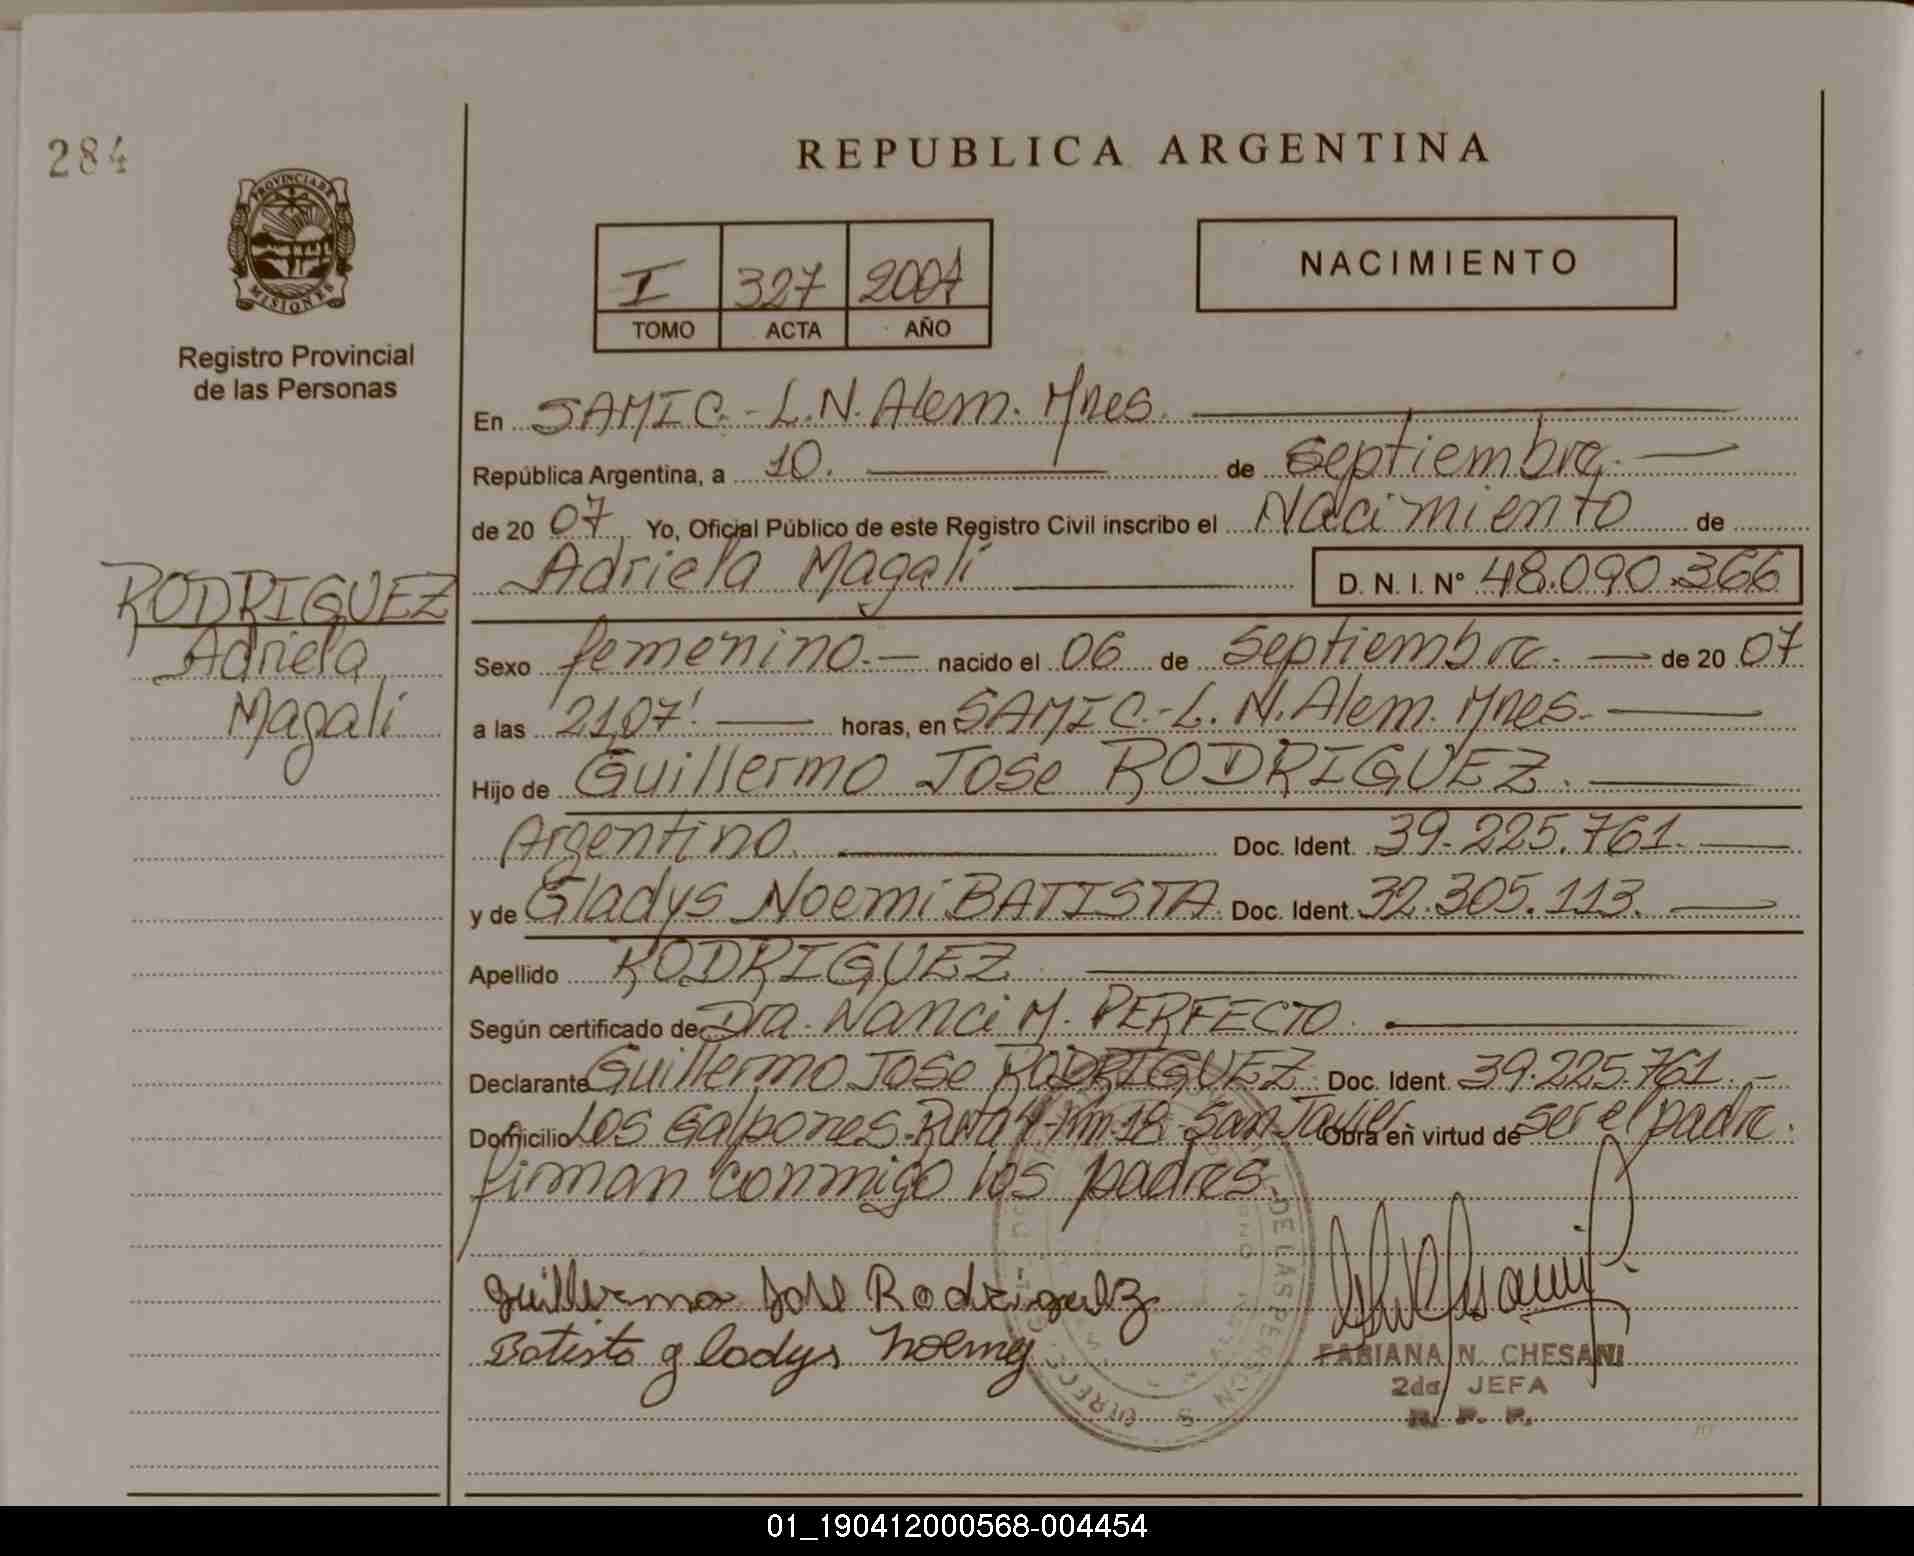 284
REPUBLICA ARGENTINA
PROVINCIA DE
MISIONES
Registro Provincial
de las Personas
I 327 2007
TOMO ACTA AÑO
NACIMIENTO
En SAMIC.-L.N.Alem. Mnes.
República Argentina, a 10. de septiembre.
de 20 07 Yo, Oficial Público de este Registro Civil inscribo el Nacimiento de
Adriela Magali D. N. I. N° 48.090.366
RODRIGUEZ
Adriela
Magali
Sexo femenino.- nacido el 06 de septiembre. de 20 07
a las 21,07'. horas, en SAMIC.-L.N.Alem. Mnes.
Hijo de Guillermo Jose RODRIGUEZ.
Argentino. Doc. Ident. 39.225.761.
y de Gladys Noemi BATISTA. Doc. Ident. 32.305.113.
Apellido RODRIGUEZ
Según certificado de Dra. Nanci M. PERFECTO.
Declarante Guillermo Jose RODRIGUEZ. Doc. Ident. 39.225.761.-
Domicilio Los Galpones-Ruta 4-km-18-San Javier Obra en virtud de ser el padre.
firman conmigo los padres.
Guillermo Jose Rodriguez
Batista gladys noemy
DE LAS PERSONAS
FABIANA N. CHESANI
2da JEFA
R. P. P.
01_190412000568-004454